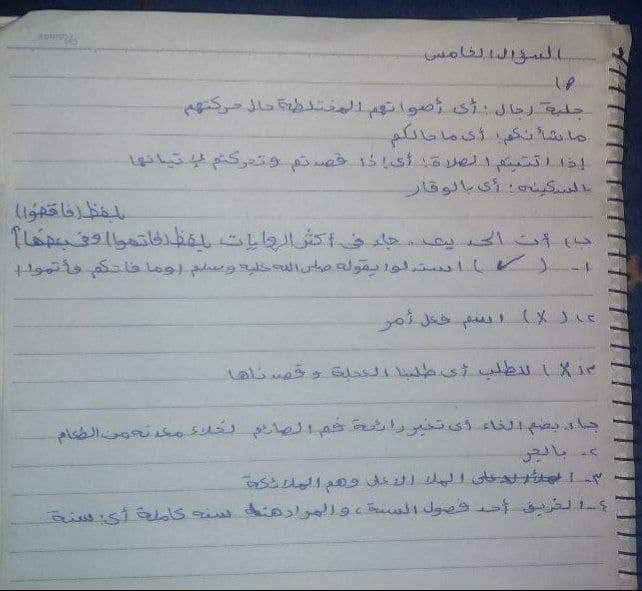 السؤال الخامس
أ)
جلبة رجال: أى أصواتهم المختلطة حال حركتهم
ما شأنكم: أى ما حالكم
إذا أتيتم الصلاة: أى إذا قصدتم وتحركتم لإتيانها
بالسكينة: أى بالوقار
بلفظ (فاقضوا)
ب) أن الحديث جاء فى أكثر الروايات بلفظ (فاتموا) وفى بعضها
١- (✓) استدلوا بقوله صلى الله عليه وسلم (وما فاتكم فأتموا)
٢- (X) اسم فعل أمر
٣- (X) للطلب أى طلبنا العجلة وقصدناها
جـ) ١- بضم الخاء أى تغير رائحة فم الصائم لخلاء معدته من الطعام
٢- بالجر
٣- الملا الاعلى وهم الملائكة
٤- الخريف أحد فصول السنة، والمراد هنا سنة كاملة أى: سنة